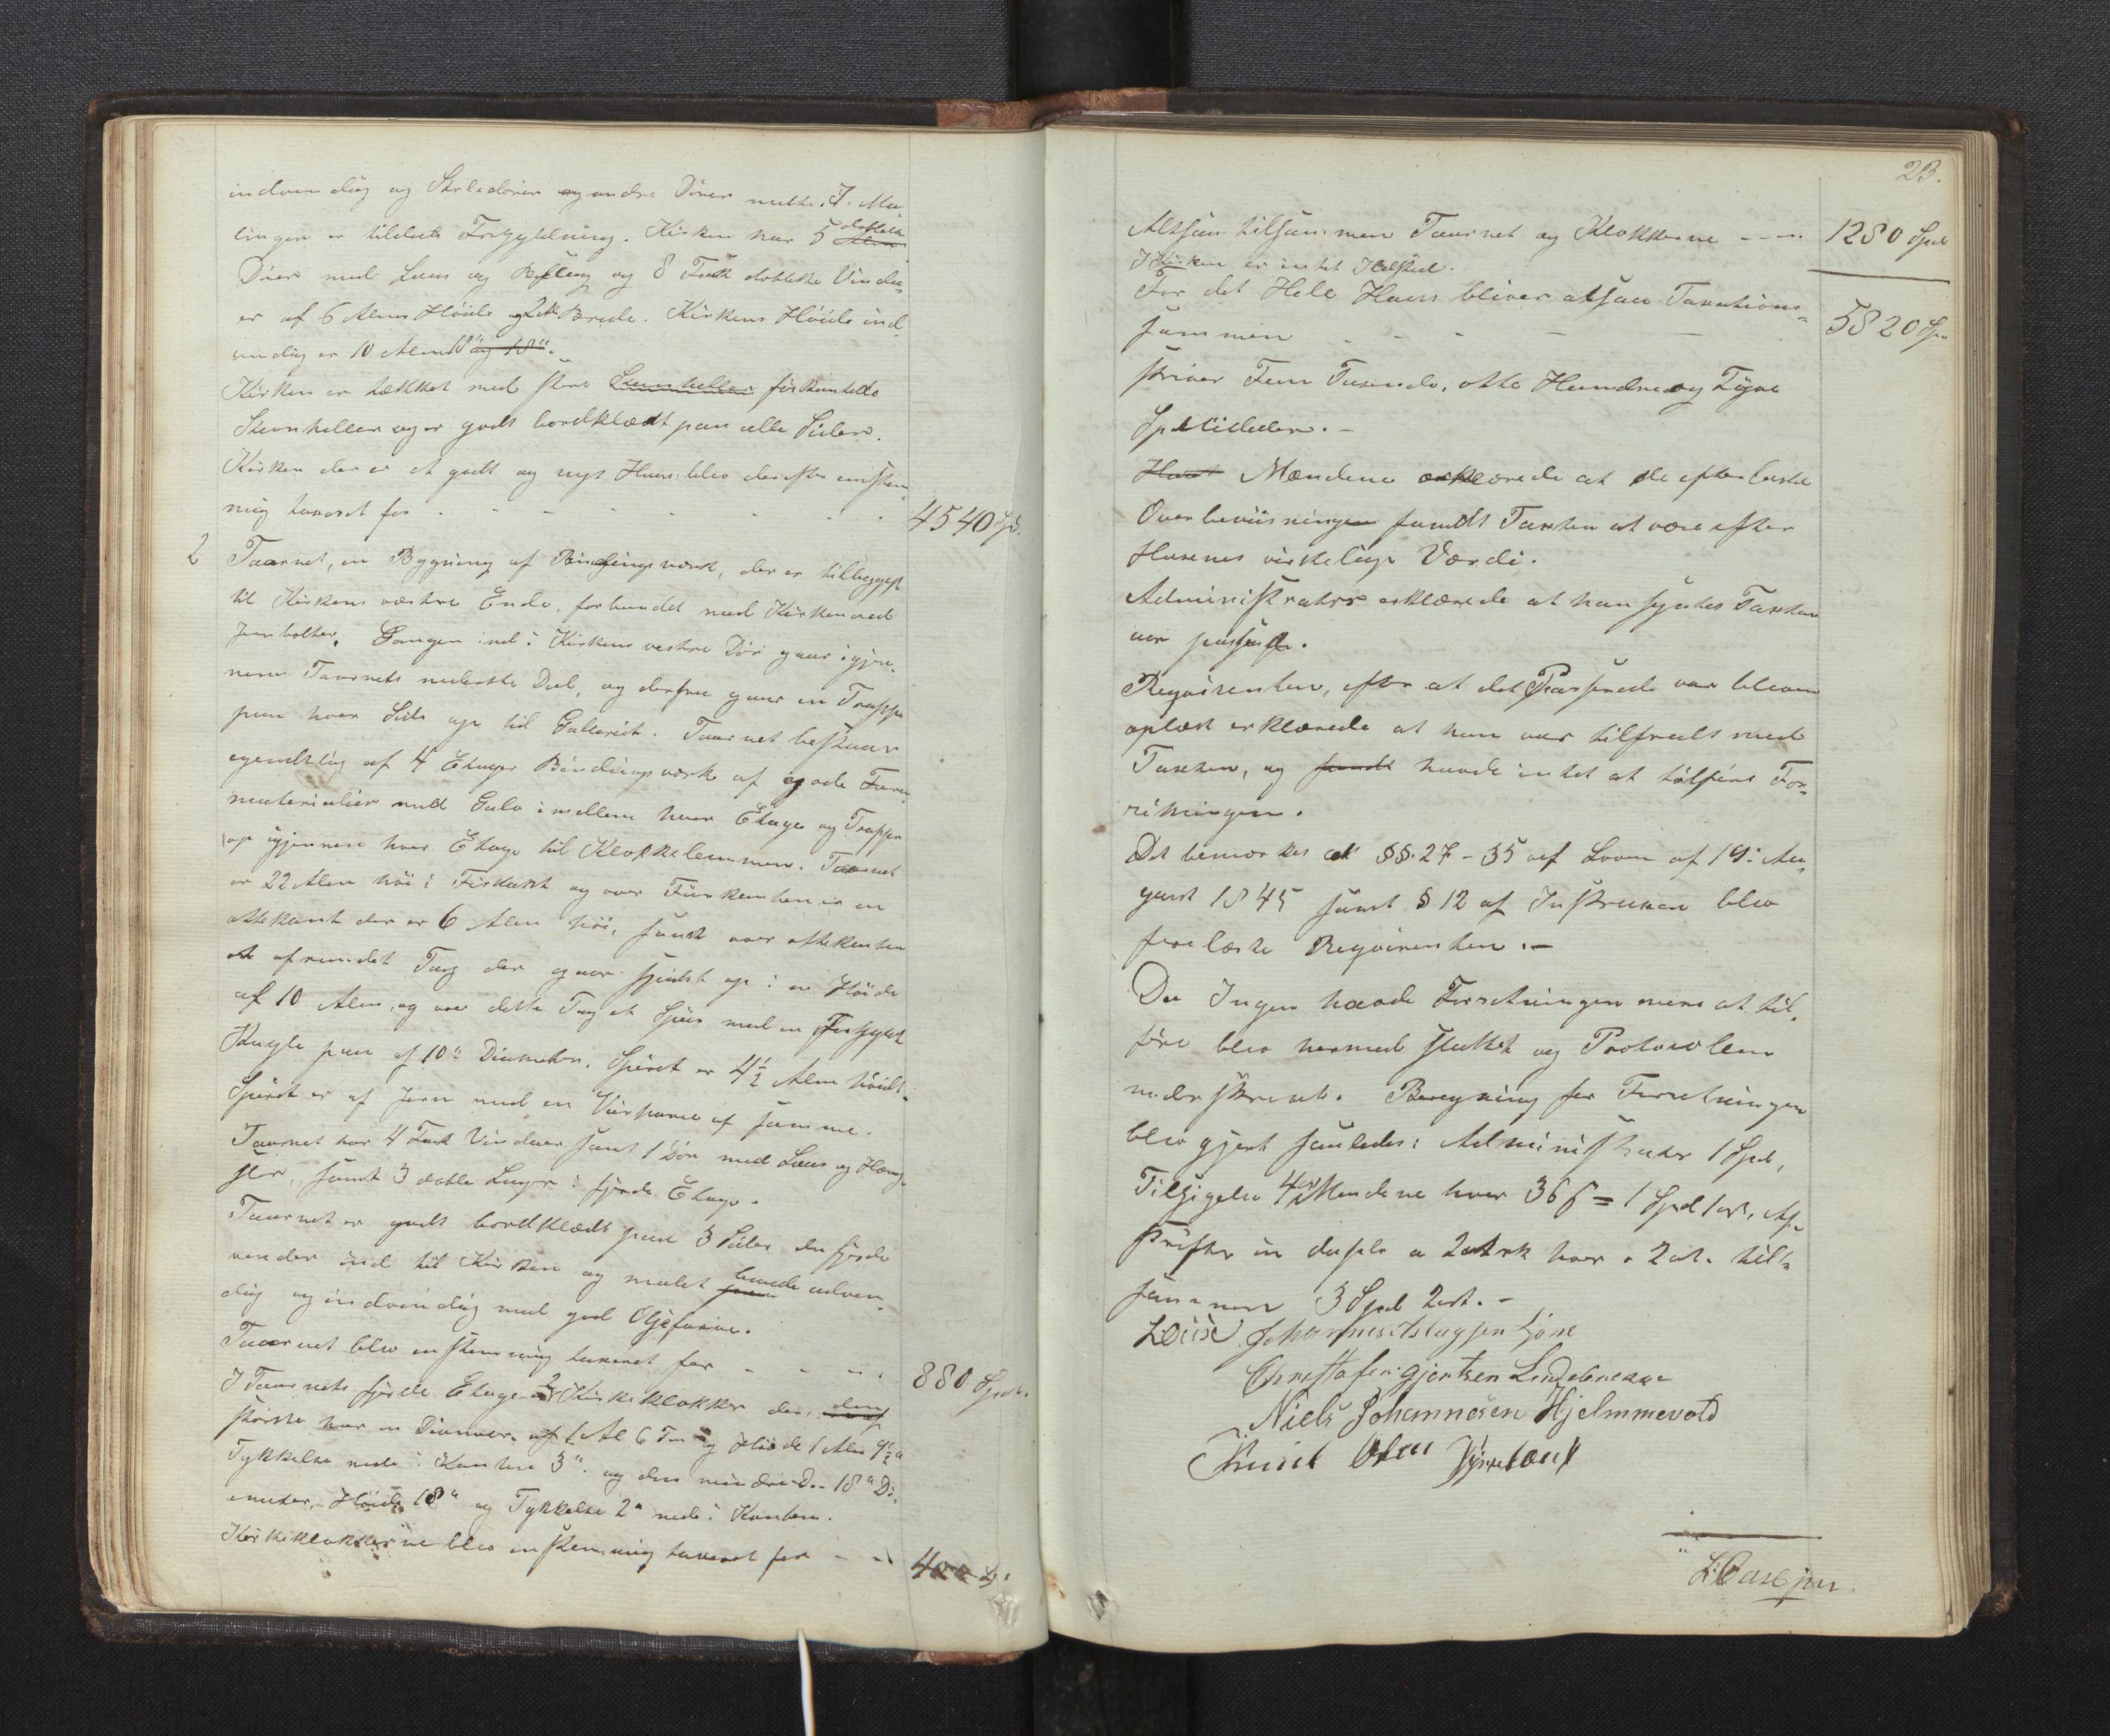 indvendig og Stoledörer og andre Dörer malte. I Ma-
lingen er tildeels Forgyldning. Kirken har 5 dobbelte
Dörer med Laas og Beslag og 8 Fack dobbelte Vindu-
er af 6 Alens Höide og 2 Al. Brede. Kirkens Höide ind-
vendig er 10 Alen 18" og 18".
Kirken er tækket med store Steenheller firkantede
Steenheller og er godt bordklædt paa alle Sider.
Kirken der er et godt og nyt Huus blev derefter eenstem-
mig taxeret for - - - - - - 4540 Spd.
2 Taarnet, en Bygning af Bindingsværk, der er tilbygget
til Kirkens vestre Ende, forbundet med Kirken ved
Jernbolter. Gangen ind i Kirkens vestre Dör gaar igjen-
nem Taarnets nederste Deel, og derfra gaar en Trappe
paa hver Side op til Galleriet. Taarnet bestaaer
egendtlig af 4 Etager Bindingsværk af gode Furu-
materialier med Gulv imellem hver Etage og Trapper
op igjennem hver Etage til Klokkelemmen. Taarnet
er 22 Alen höi i Firkant og over Firkanten er en
ottekant der er 6 Alen höi, samt over ottekanten
et afrundet Tag der gaar spidst op i en Höide
af 10 Alen, og over dette Tag et Spiir med en Forgyldt
Kugle paa af 10" Diameter. Spiret er 4½ Alen höidt.
Spiret er af Jern med en Veirhane af samme.
Taarnet har 4 Fack Vinduer samt 1 Dör med Laas og Hæng-
sler, samt 3 doble Luger i fjerde Etage.
Taarnet er godt bordklædt paa 3 Sider den fjerde
vender ind til Kirken og malet baade udven-
dig og indvendig med god Oljefarve.
Taarnet blev enstemmig taxeret for - - - - 880 Spd.
I Taarnets fjerde Etage 2 Kirkeklokker der, den
störste har en Diameter af 1 Al 6 Tom og Höide 1 Alen 9½"
Tykkelse nede i Kanten 3". og den mindre D. 18" Di-
ameter, Höide 18" og Tykkelse 2" nede i Kanten.
Kirkeklokkerne blev enstemmig taxeret for - - 400 Spd.
23.
Altsaa tilsammen Taarnet og Klokkerne - - - - 1280 Spd
I Kirken er intet Ildsted.
For det Hele Huus bliver altsaa Taxations-
summen - - - - 5820 Sp
skriver Fem Tusende, otte Hundre og Tyve
Speciedaler. -
Huset Mændene erklærede at de efter beste
Overbeviisningen fandt Taxten at være efter
Husenes virkelige Værdi.
Administrator erklærede at han syntes Taxten
var passende.
Reqvirenten, efter at det Passerede var bleven
oplæst erklærede at han var tilfreds med
Taxten, og fandt havde intet at tilföre For-
retningen.
Det bemærkes at §§. 27-35 af Loven af 19: Au-
gust 1845 samt § 12 af Instruxen blev
forelæste Reqvirenten. -
Da Ingen havde Forretningen mere at til-
före blev hermed sluttet og Protocolen
underskrevet. Beregning for Forretningen
blev gjort saaledes: Administrator 1 Spd,
Tilsigelse 4 Mændene hver 36 ß = 1 Spd 1 ort, Af-
skrifter in duplo a 2 Ark hver . 2 ort. til-
sammen 3 Spd 2 ort. -
Johannes Aslagsen
Christofer Gjertsen
Niels Johannesen Hjelmmevold
Knut Olsen